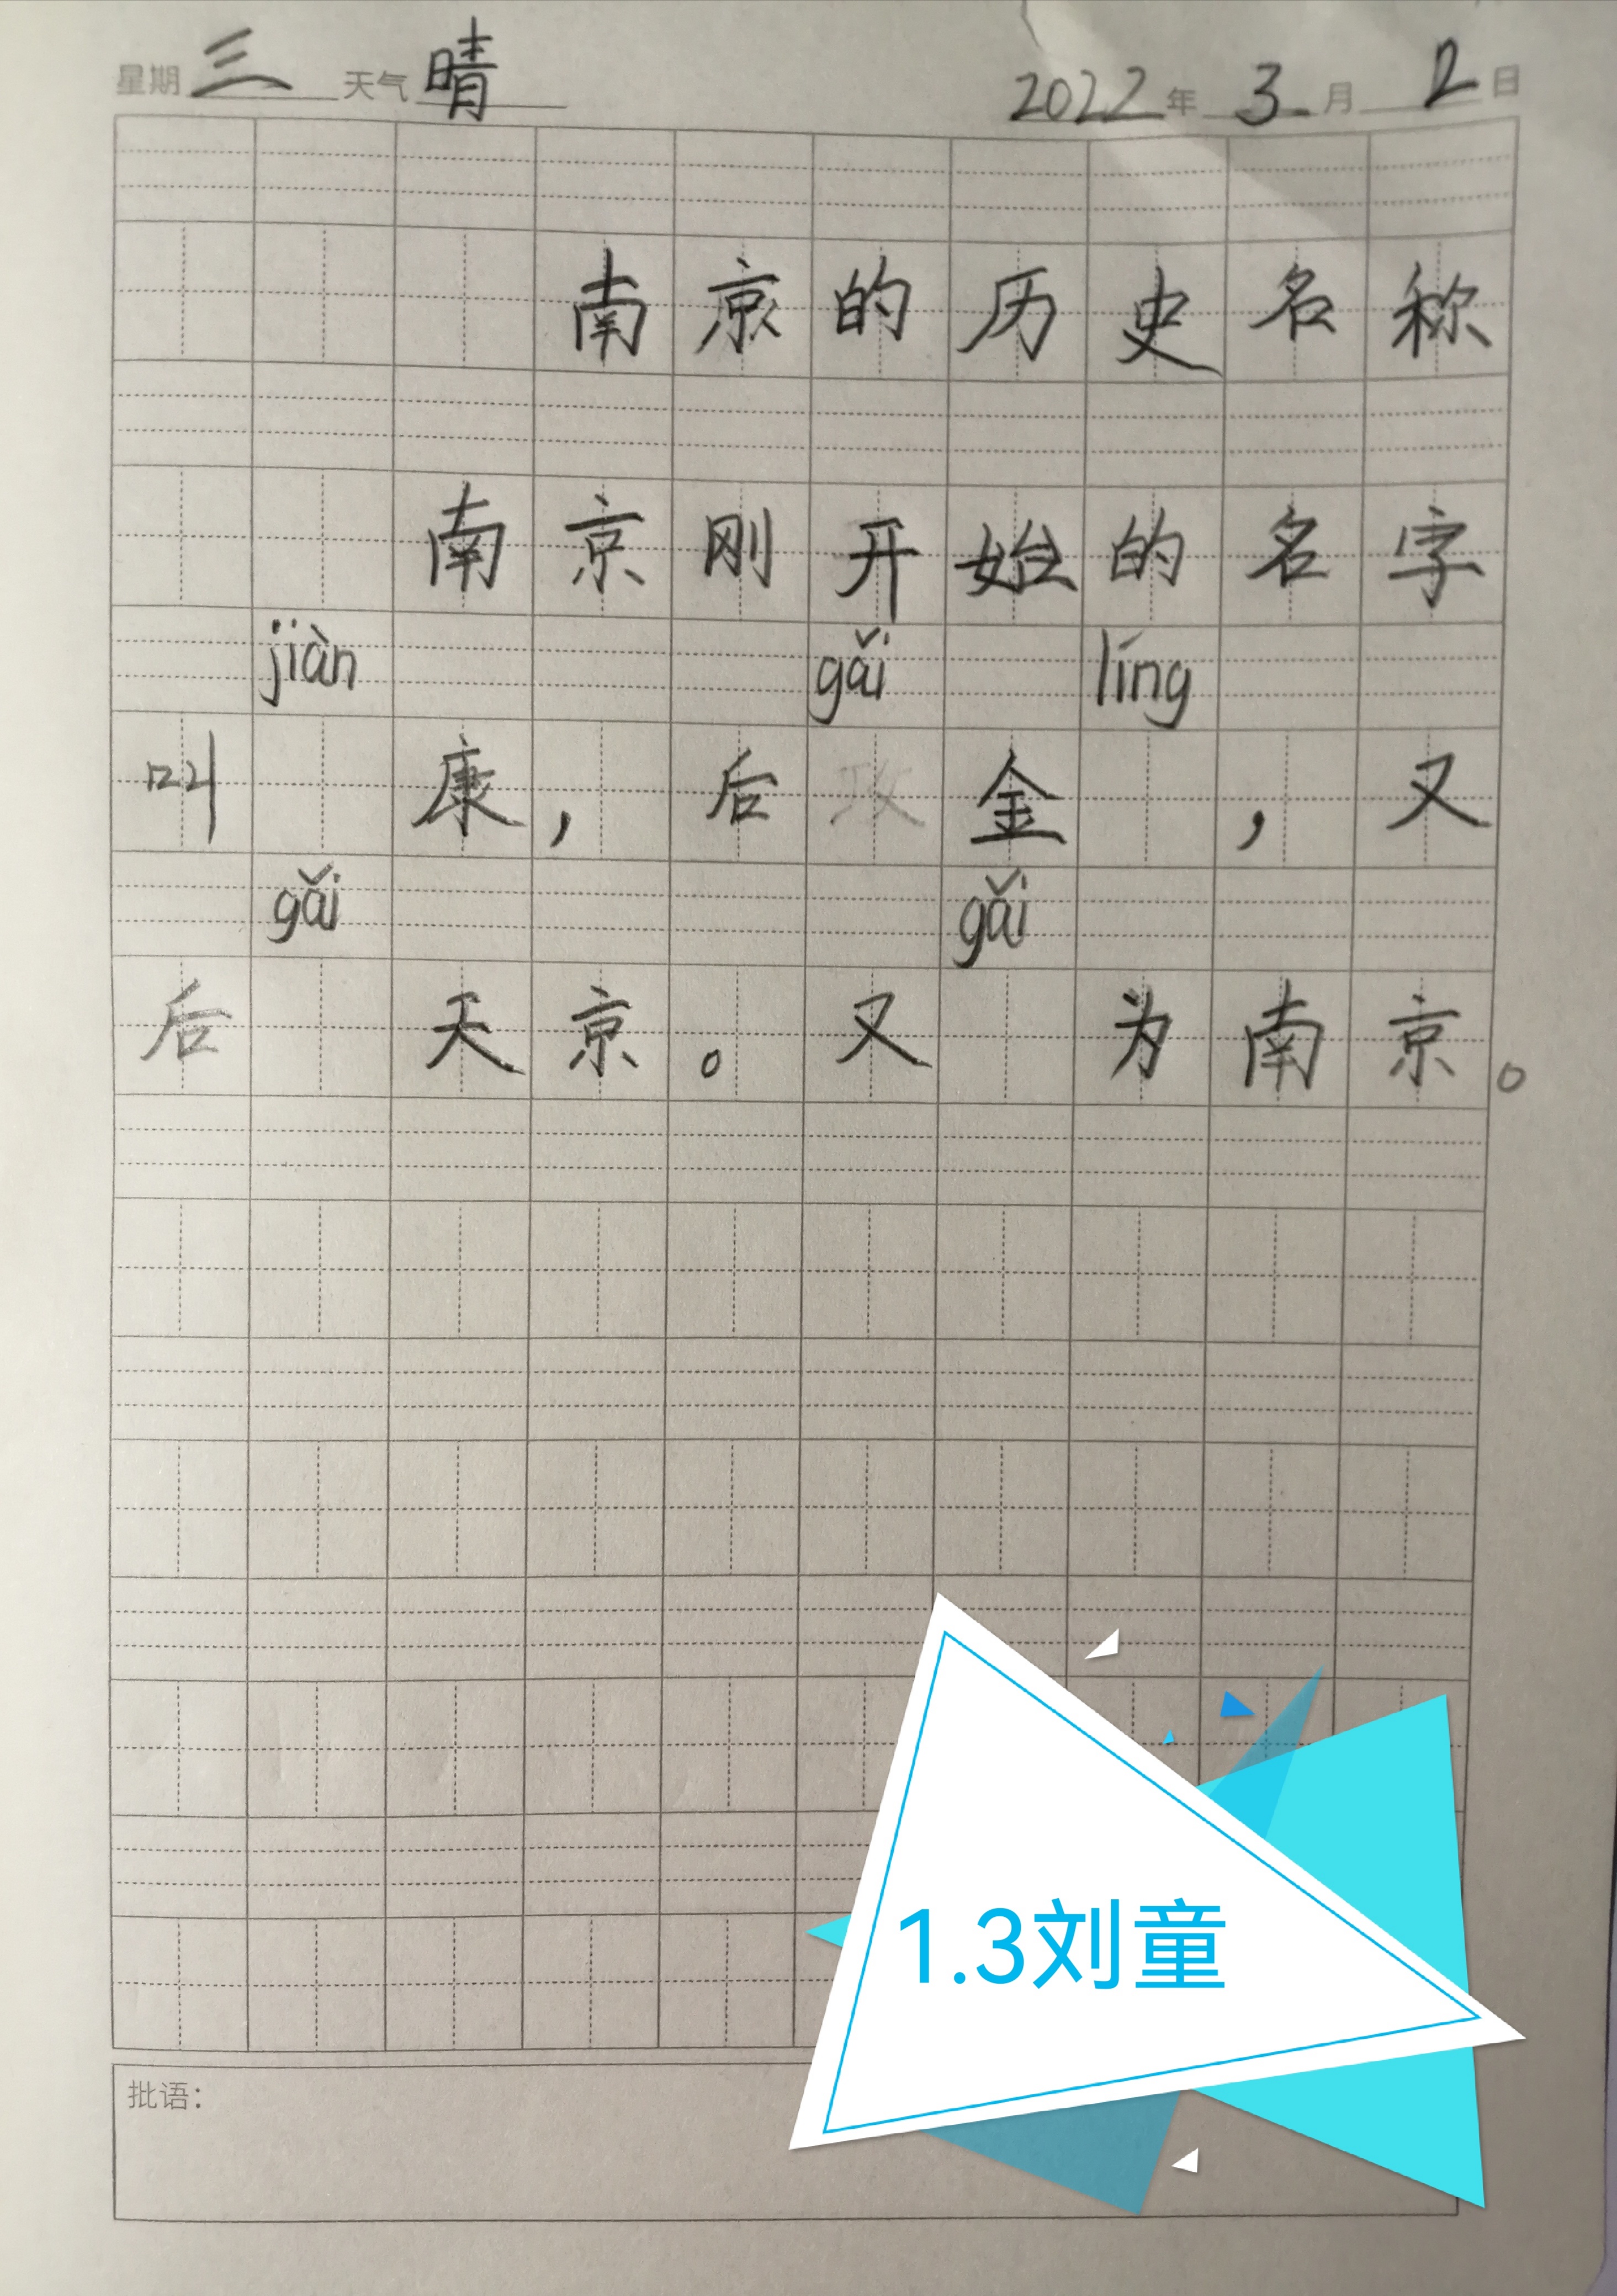 星期 三 天气 晴 2022 年 3 月 2 日
南京的历史名称
南京刚开始的名字
jiàn gǎi líng
叫 康，后 金 ，又
gǎi gǎi
后 天京。又 为南京。
1.3刘童
批语：